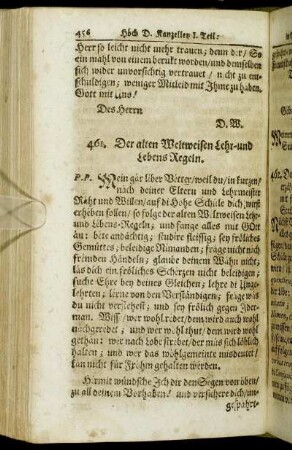 456 Höch D. Kanzelley I. Teil:
Herr so leicht nicht mehr trauen; denn der/ So
ein mahl von einem beruckt worden/und demselben
sich wider unvorsichtig vertrauet/ nicht zu ent-
schuldigen; weniger Mitleid mit Ihme zu haben.
Gott mit Uns!
Des Herrn
D. W.
461. Der alten Weltweisen Lehr-und
Lebens Regeln.
P. P. Mein gar liber Vetter/weil du/in kurzen/
nach deiner Eltern und Lehrmeister
Raht und Willen/auf di Hohe Schule dich/wirst
erheben sollen/ so folge der alten Weltweisen Lehr-
und Lebens-Regeln/ und fange alles mit Gott
an: bäte andächtig; studire fleissig; sey fröliches
Gemüttes; beleidige Nimanden; frage nicht nach
fremden Händeln; glaube deinem Wahn nicht;
las dich ein fröliches Scherzen nicht beleidigen;
suche Ehre bey deines Gleichen; lehre di Unge-
lehrten; lerne von den Verständigen; frage was
du nicht verstehest; und sey frölich gegen Jder-
man. Wiss/ wer wohl redet/dem wird auch wohl
nachgeredet; und wer wohl thut/ dem wird wohl
gethan: wer nach Lobe strebet/der mus sich löblich
halten; und wer das wohlgemeinte misdeutet/
kan nicht für Fromm gehalten werden.
Hirmit wündsche Ich dir den Segen von oben/
zu all deinem Vorhaben/ und versichere dich/un-
gespahrt-